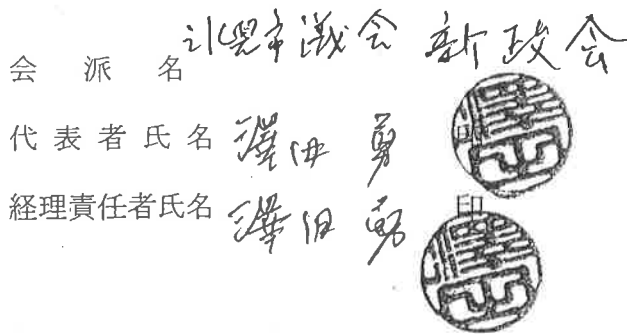 会派名 氷見市議会 新政会
代表者氏名 澤田 勇
印
経理責任者氏名 澤田 勇
印